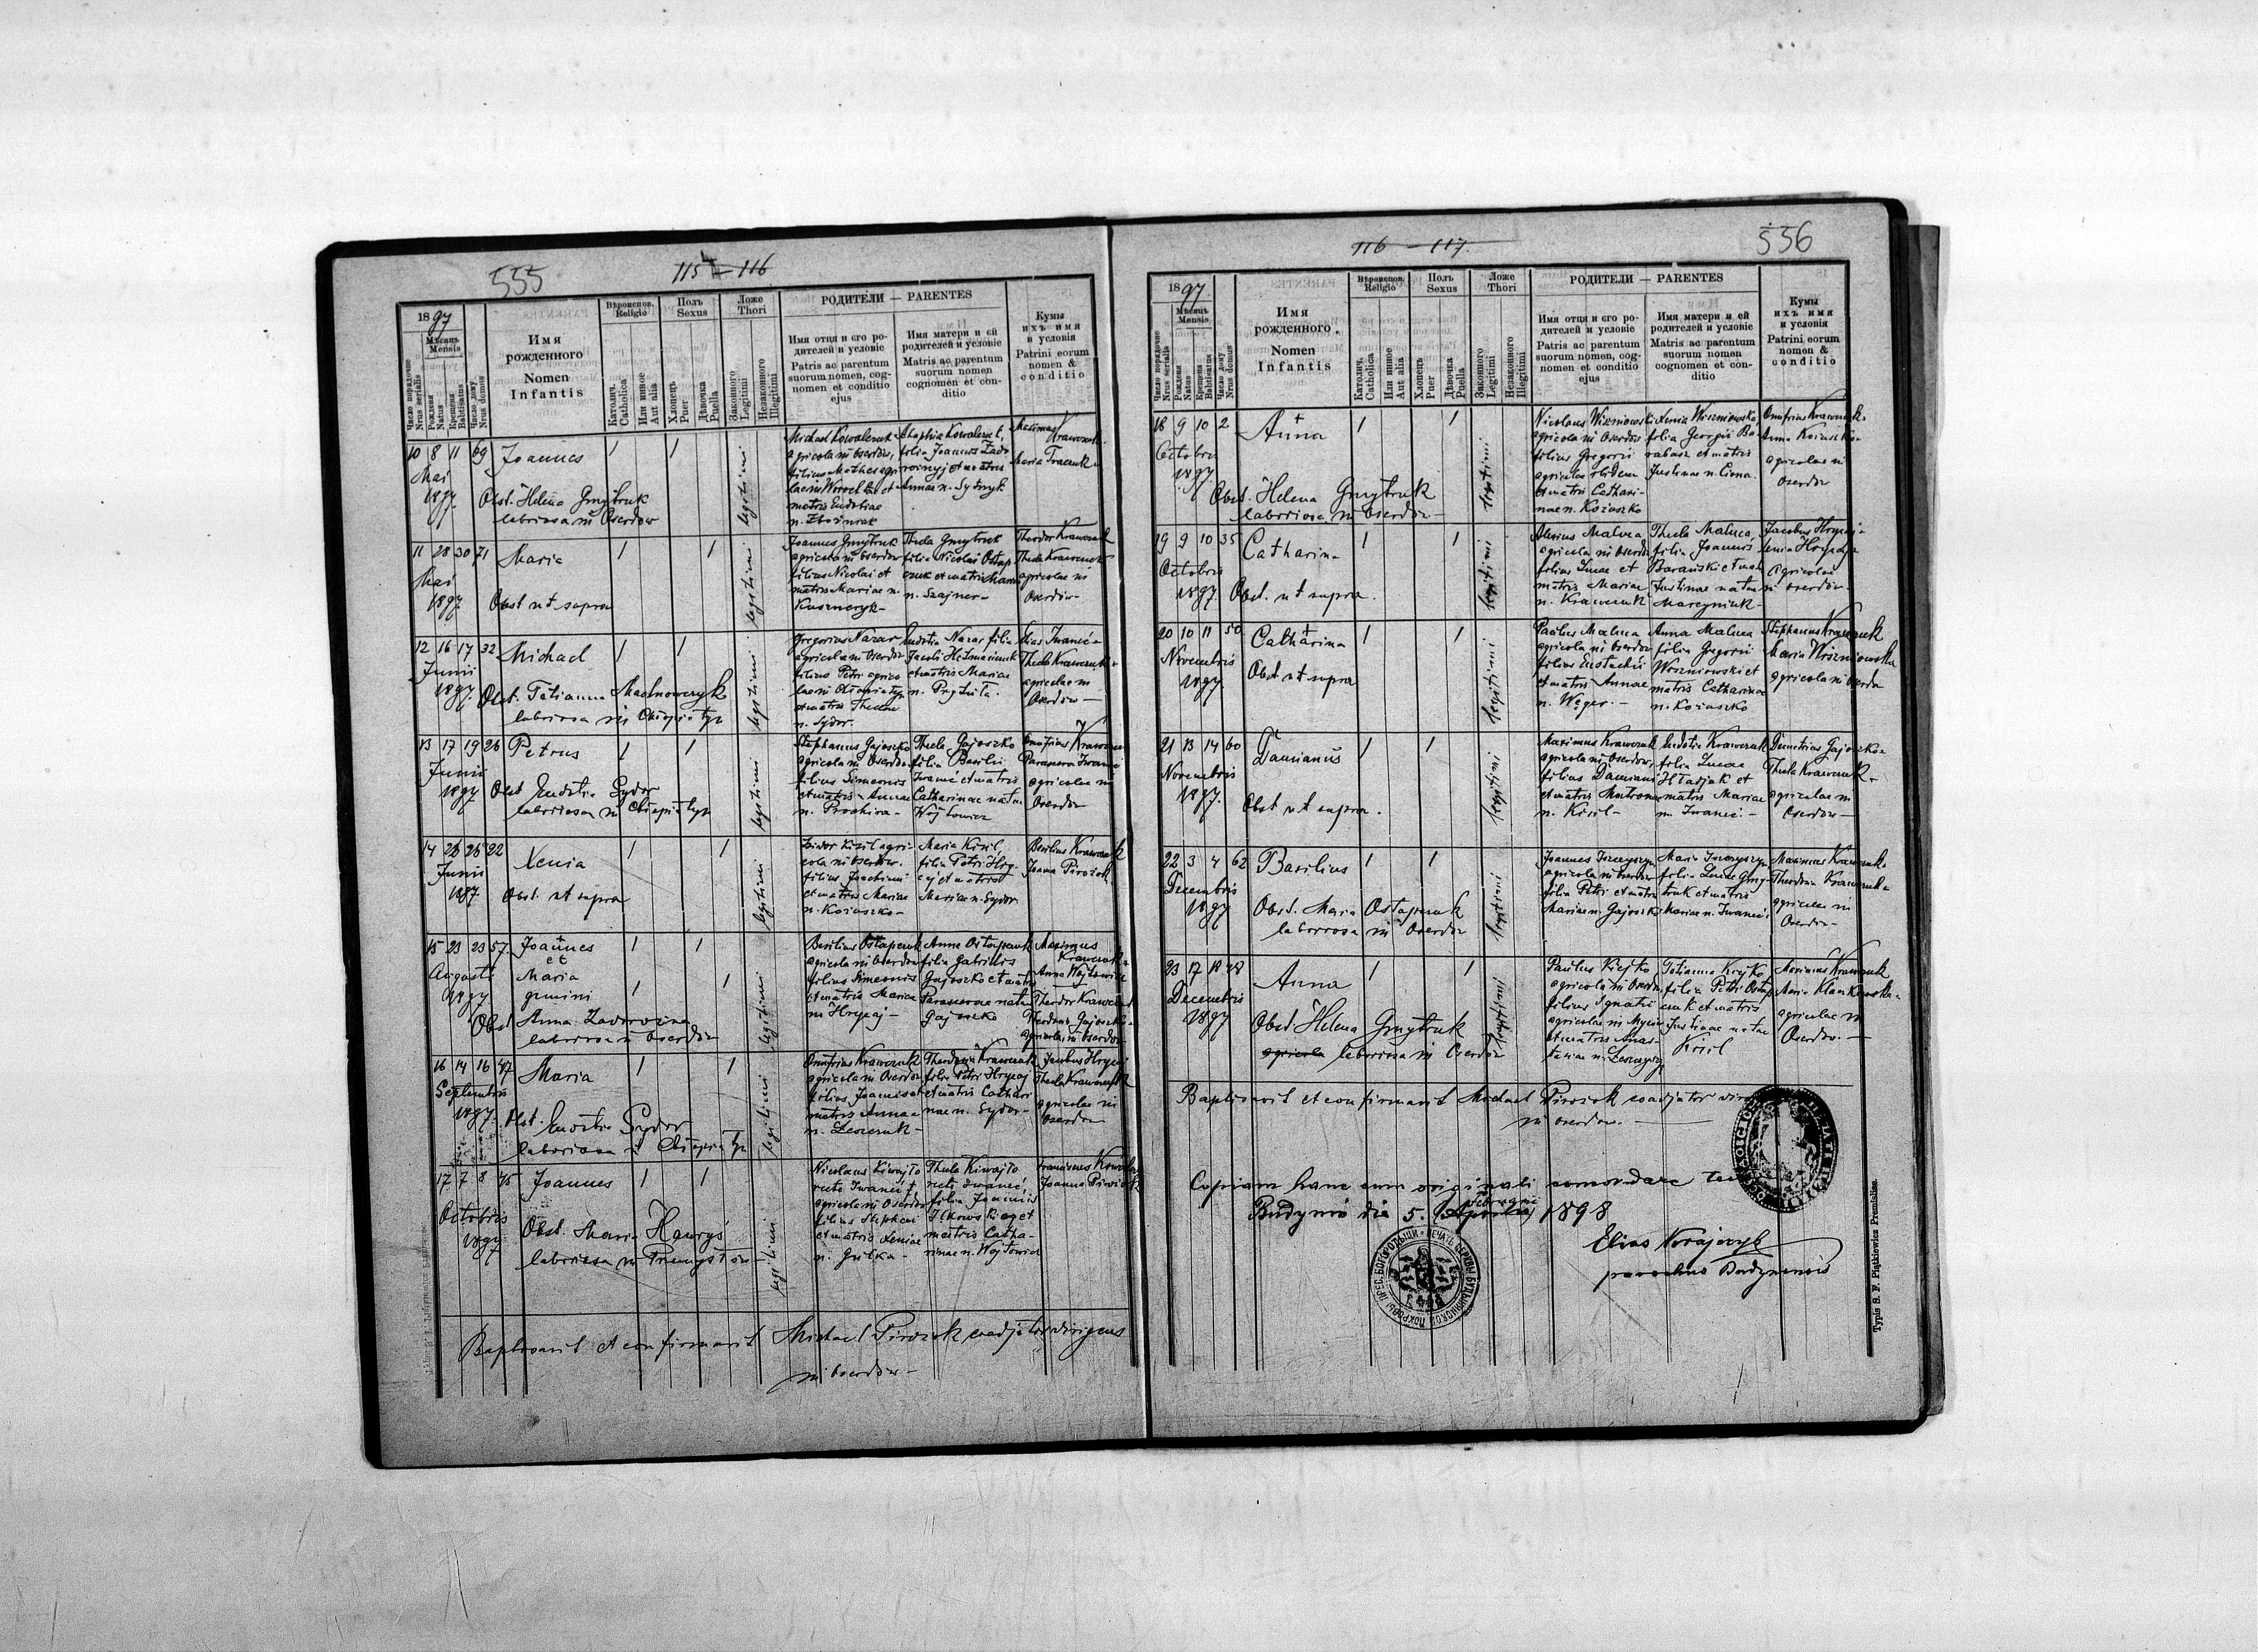 555
115 — 116
1897
Мѣсяць
Mensis
Число порядочне
Nrus serialis
Рождена
Natus
Крещена
Babtisatus
Число дому
Nrus domus
Имя
рожденного
Nomen
Infantis
Вѣроиспов.
Religio
Католич.
Catholica
Или инное
Aut alia
Полъ
Sexus
Хлопець
Puer
Дѣвочка
Puella
Ложе
Thori
Законного
Legitimi
Незаконного
Illegitimi
РОДИТЕЛИ — PARENTES
Имя отця и его ро-
дителей и условіе
Patris ac parentum
suorum nomen, cog-
nomen et conditio
ejus
Имя матери и ей
родителей и условіе
Matris ac parentum
suorum nomen
cognomen et con-
ditio
Кумы
ихъ имя
и условія
Patrini eorum
nomen &
conditio
10 8 11 69 Joannes 1 1
Mai
1897
Obst. Helena Gmytruk
laboriosa in Oserdow
legitimi
Michael Kowalczuk
agricola in Oserdow,
filius
matris Eudokiae
Sophia Kowalczuk,
filia Joannis
et matris
Annae n. Sydoryk
Maximus
Krawczuk
Maria Traczuk
11 28 30 71 Maria 1 1
Mai
1897
Obst ut supra
legitimi
Joannes Gmytruk
agricola in Oserdow
filius Nicolai et
matris Mariae n.
Kuszneryk
Thecla Gmytruk
filia Nicolai Ostap
czuk et matris Mariae
n. Szajner
Theodor Krawczuk
Thecla Krawczuk
agricolae in
Oserdow
12 16 17 32 Michael 1 1
Junii
1897
Obst. Tatianna Machnowczyk
laboriosa in Chłopiatyn
legitimi
Gregorius Nazar
agricola in Oserdow
filius Petri agrico
lae in Chłopiatyn
et matris Theclae
n. Sydor.
Eudotia Nazar filia
Jacobi
et matris Mariae
Elias Iwanić
Thecla Krawczuk
agricolae in
Oserdow
13 17 19 26 Petrus 1 1
Junii
1897
Obst Eudotia Sydor
laboriosa in Chłopiatyn
legitimi
Stephanus Gajoszko
agricola in Oserdow
filius Simeonis
et matris Annae
n. Prochira
Thecla Gajoszko
filia Basilii
Iwanić et matris
Catharinae natae
Wójtowicz
Onufrius Krawczuk
Parascewa Iwanić
agricolae in
Oserdow
14 26 26 22 Xenia 1 1
Junii
1897.
Obst. ut supra
legitimi
Isidor Kisil agri-
cola in Oserdow.
filius Joachimi
et matris Mariae
n. Kożuszko
Maria Kisil,
filia Petri Hry-
caj et matris
Mariae n. Sydor
Basilius Krawczuk
Joanna Pirożok
15 23 23 57. Joannes
et
Maria
gemini
Augusti
1897
Obst Anna Zadorożna
laboriosa in Oserdow
legitimi
Basilius Ostapczuk
agricola in Oserdow
filius Simeonis
et matris Mariae
n. Hrycaj
Anna Ostapczuk
filia Gabrielis
Gajoszko et matris
Parascevae natae
Gajoszko
Maximus
Krawczuk
Anna Wójtowicz
Theodor Krawczuk
Theodosia Gajoszko
agricolae in Oserdow
16 14 16 47 Maria 1 1
Septembris
1897
Obst. Eudotia Sydor
laboriosa in Chłopiatyn
legitimi
Onufrius Krawczuk
agricola in Oserdow
filius Joannis et
matris Annae
n. Leszczuk
Theodosia Krawczuk
filia Petri Hrycaj
et matris Cathari
nae n. Sydor
Jacobus Hrycaj
Thecla Krawczuk
agricolae in
Oserdow
17 7 8 45 Joannes 1 1
Octobris
1897
Obst. Maria Hawryś
laboriosa in Przemysłow
legitimi
Nicolaus Kiwajło
recte Iwanić
agricola in Oserdow
filius Stephani
et matris Xeniae
n. Gulka
Thecla Kiwajło
recte Iwanić
filia Joannis
et
matris Catha-
rinae n. Wójtowicz
Franciscus Kowal
Joanna
Baptisavit et confirmavit Michael Pirożok coadjutor dirigens
in Oserdow
116 — 117.
536
1897.
Мѣсяць
Mensis
Число порядочне
Nrus serialis
Рождена
Natus
Крещена
Babtisatus
Число дому
Nrus domus
Имя
рожденного
Nomen
Infantis
Вѣроиспов.
Religio
Католич.
Catholica
Или инное
Aut alia
Полъ
Sexus
Хлопець
Puer
Дѣвочка
Puella
Ложе
Thori
Законного
Legitimi
Незаконного
Illegitimi
РОДИТЕЛИ — PARENTES
Имя отця и его ро-
дителей и условіе
Patris ac parentum
suorum nomen, cog-
nomen et conditio
ejus
Имя матери и ей
родителей и условіе
Matris ac parentum
suorum nomen
cognomen et con-
ditio
Кумы
ихъ имя
и условія
Patrini eorum
nomen &
conditio
18 9 10 2 Anna 1 1
Octobris
1897.
Obst. Helena Gmytruk
laboriosa in Oserdow
legitimi
Nicolaus Wiszniowski
agricola in Oserdow
filius Gregorii
agricolae ibidem
et matris Cathari-
nae n. Kożuszko
Xenia Wiszniowska
filia Georgii Ba-
rabasz et matris
Justinae n. Ciona
Onufrius Krawczuk
Anna Kożuszko
agricolae in
Oserdow
19 9 10 35 Catharina 1 1
Octobris
1897.
Obst. ut supra.
legitimi
Alexius Maluca
agricola in Oserdow
filius Lucae et
matris Mariae
n. Krawczuk
Thecla Maluca,
filia Joannis
Barański et mat.
Justinae natae
Marcyniuk
Jacobus Hrycaj
Xenia Hrycaj
agricolae
in Oserdow
20 10 11 50 Catharina 1 1
Novembris
1897.
Obst ut supra
legitimi
Paulus Maluca
agricola in Oserdow
filius Eustachii
et matris Annae
n. Węger.
Anna Maluca
filia Gregorii
Wiszniowski et
matris Catharinae
n. Kożuszko
Stephanus Krawczuk
Maria Wiszniowska
agricolae in Oserdow
21 13 14 60 Damianus 1 1
Novembris
1897.
Obst ut supra.
legitimi
Maximus Krawczuk
agricola in Oserdow,
filius Damiani
et matris Matronae
n. Kisil
Eudotia Krawczuk
filia Lucae
Hładjak et
matris Mariae
n. Iwanić.
Demetrius Gajoszko
Thecla Krawczuk
agricolae in
Oserdow
22 3 4 62 Basilius 1 1
Decembris
1897
Obst. Maria Ostapczuk
laboriosa in Oserdow
legitimi
Joannes Iszczyszyn
agricola in Oserdow
filius Petri et matris
Mariae n. Gajoszko
Maria Iszczyszyn
filia Lucae Gmy-
truk et matris
Mariae n. Iwanić
Maximus Krawczuk
Theodora Krawczuk
agricolae in
Oserdow
23 17 18 48 Anna 1 1
Decembris
1897
Obst Helena Gmytruk
agricola laboriosa in Oserdow
legitimi
Paulus Kijko
agricola in Oserdow
filius Ignatii
agricolae in
et matris Anas-
tasiae n.
Tatianna Kijko
filia Petri Ostap
czuk et matris
Justinae natae
Kisil
Maximus Krawczuk
Maria
agricolae in
Oserdow.
Baptisavit et confirmavit Michael Pirożok coadjutor
in Oserdow.
Copiam hanc cum originali concordare
Februarii
Budynin die 5. Aprilis 1898
Elias
parochus Budynensis
ПЕЧАТЬ ЦЕРКВЫ БУДЫНИНСКОЙ ПОКРОВЫ ПРЕС. БОГОРОДЫЦИ
Typis S. F. Piątkiewicz Premisliae.